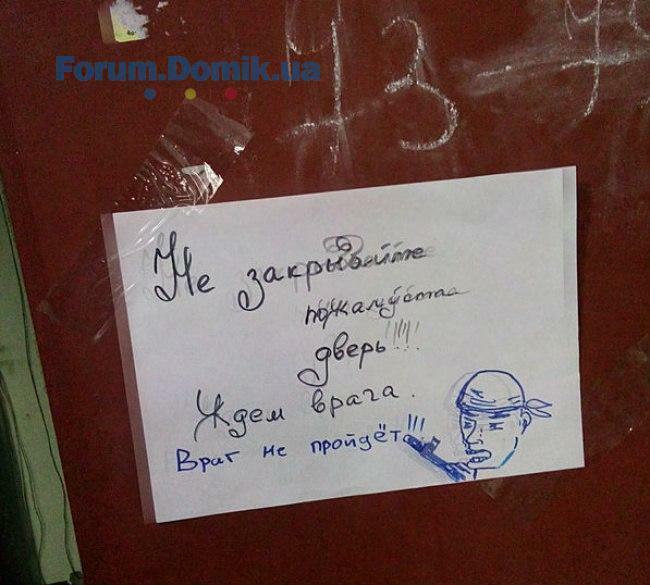 Forum.Domik.ua
43
Не закрывайте
пожалуйста
дверь!!!
Ждем врача.
Враг не пройдёт!!!